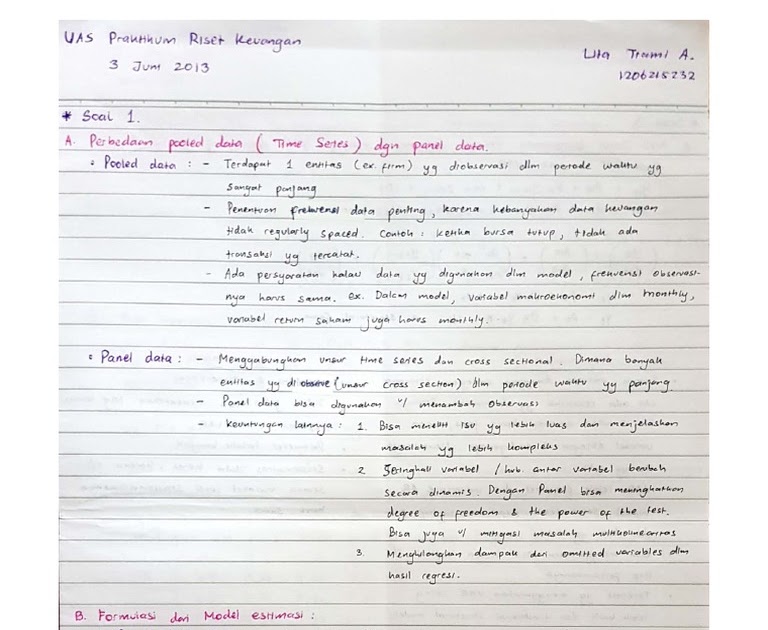 UAS Praktikum Riset Keuangan
3 Juni 2013
Lita Trami A.
1206218232
* Soal 1.
A. Perbedaan pooled data ( Time Series ) dgn panel data.
• Pooled data : - Terdapat 1 entitas (ex. firm) yg diobservasi dlm periode waktu yg
sangat panjang
- Penentuan frekuensi data penting, karena kebanyakan data keuangan
tidak regularly spaced. Contoh : ketika bursa tutup, tidak ada
transaksi yg tercatat.
- Ada persyaratan kalau data yg digunakan dlm model, frekuensi observasi-
nya harus sama. ex. Dalam model, variabel makroekonomi dlm monthly,
variabel return saham juga harus monthly.
• Panel data : - Menggabungkan unsur time series dan cross sectional. Dimana banyak
entitas yg di observe (unsur cross section) dlm periode waktu yg panjang.
- Panel data bisa digunakan u/ menambah observasi
- Keuntungan lainnya : 1. Bisa meneliti isu yg lebih luas dan menjelaskan
masalah yg lebih kompleks
2. Seringkali variabel / hub. antar variabel berubah
secara dinamis. Dengan Panel bisa meningkatkan
degree of freedom & the power of the test.
Bisa juga u/ mitigasi masalah multikolinearitas
3. Menghilangkan dampak dari omitted variables dlm
hasil regresi.
B. Formulasi dari Model estimasi :